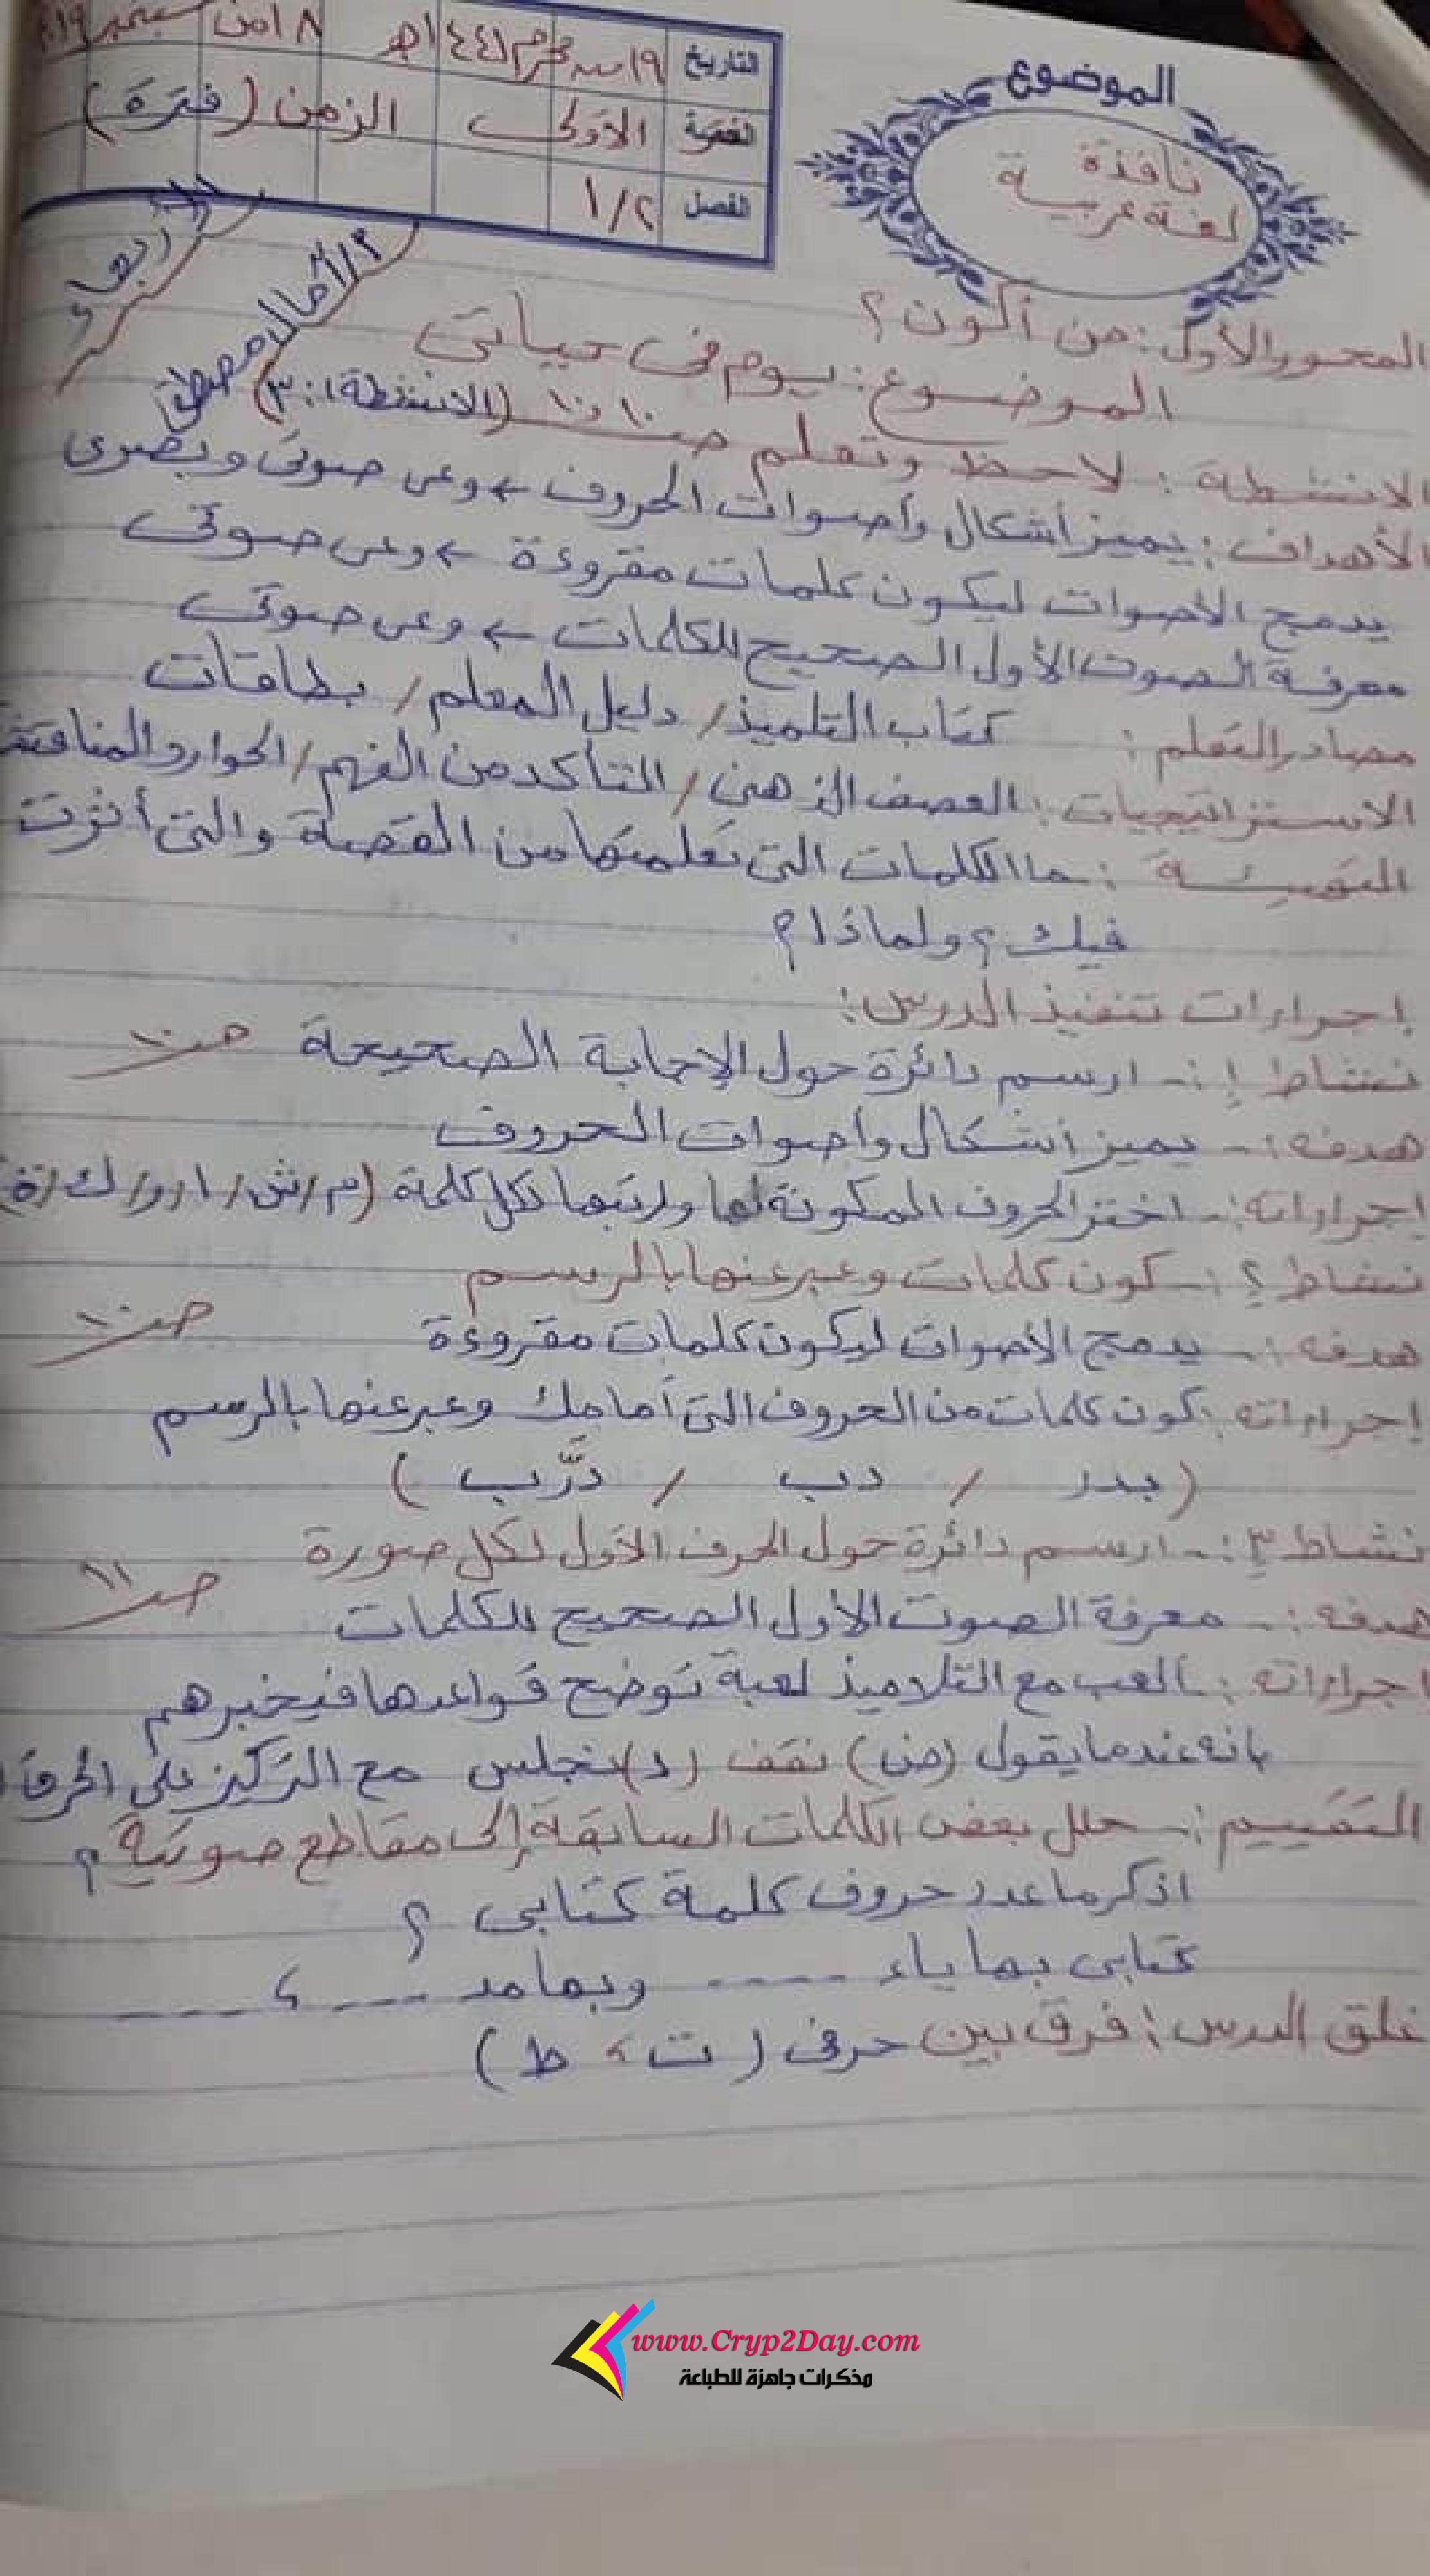 الموضوع
نافذة
لغة عربية
التاريخ ١٩ من محرم ١٤٤١هـ ١٨ من سبتمبر ٢٠١٩
الفترة الأولى الزمن (فترة)
الفصل ١/٢
أربعاء
المحور الأول: من أكون؟
الموضوع: يوم فى حياتى
الأنشطة: لاحظ وتعلم صـ ١٠ (الأنشطة ١: ٣)
الأهداف: يميز أشكال وأصوات الحروف ← وعى صوتى وبصرى
يدمج الأصوات ليكون كلمات مقروءة ← وعى صوتى
معرفة الصوت الأول الصحيح للكلمات ← وعى صوتى
مصادر التعلم: كتاب التلميذ / دليل المعلم / بطاقات
الاستراتيجيات: العصف الذهنى / التأكد من الفهم / الحوار والمناقشة
التهيئة: ما الكلمات التى تعلمتها من القصة والتى أثرت
فيك؟ ولماذا؟
إجراءات تنفيذ الدرس:
نشاط ١:- ارسم دائرة حول الإجابة الصحيحة صـ ١٠
هدفه:- يميز أشكال وأصوات الحروف
إجراءاته:- اختر الحروف المكونة لها ورتبها لكل كلمة (م/ش/ا/و/ك/ة)
نشاط ٢:- كون كلمات وعبر عنها بالرسم
هدفه:- يدمج الأصوات ليكون كلمات مقروءة صـ ١٠
إجراءاته: كون كلمات من الحروف التى أمامك وعبر عنها بالرسم
(بدر / دب / درَّب)
نشاط ٣:- ارسم دائرة حول الحرف الأول لكل صورة
هدفه:- معرفة الصوت الأول الصحيح للكلمات صـ ١١
إجراءاته: العب مع التلاميذ لعبة توضح قواعدها فيخبرهم
بأنه عندما يقول (ض) نقف (د) نجلس مع التركيز على الحرف
التقييم:- حلل بعض الكلمات السابقة إلى مقاطع صوتية؟
اذكر ما عدد حروف كلمة كتابى؟
كتابى بها ياء ..... وبها مد .... ، ....
غلق الدرس: فرق بين حرفى (ت ، ط)
www.Cryp2Day.com
مذكرات جاهزة للطباعة